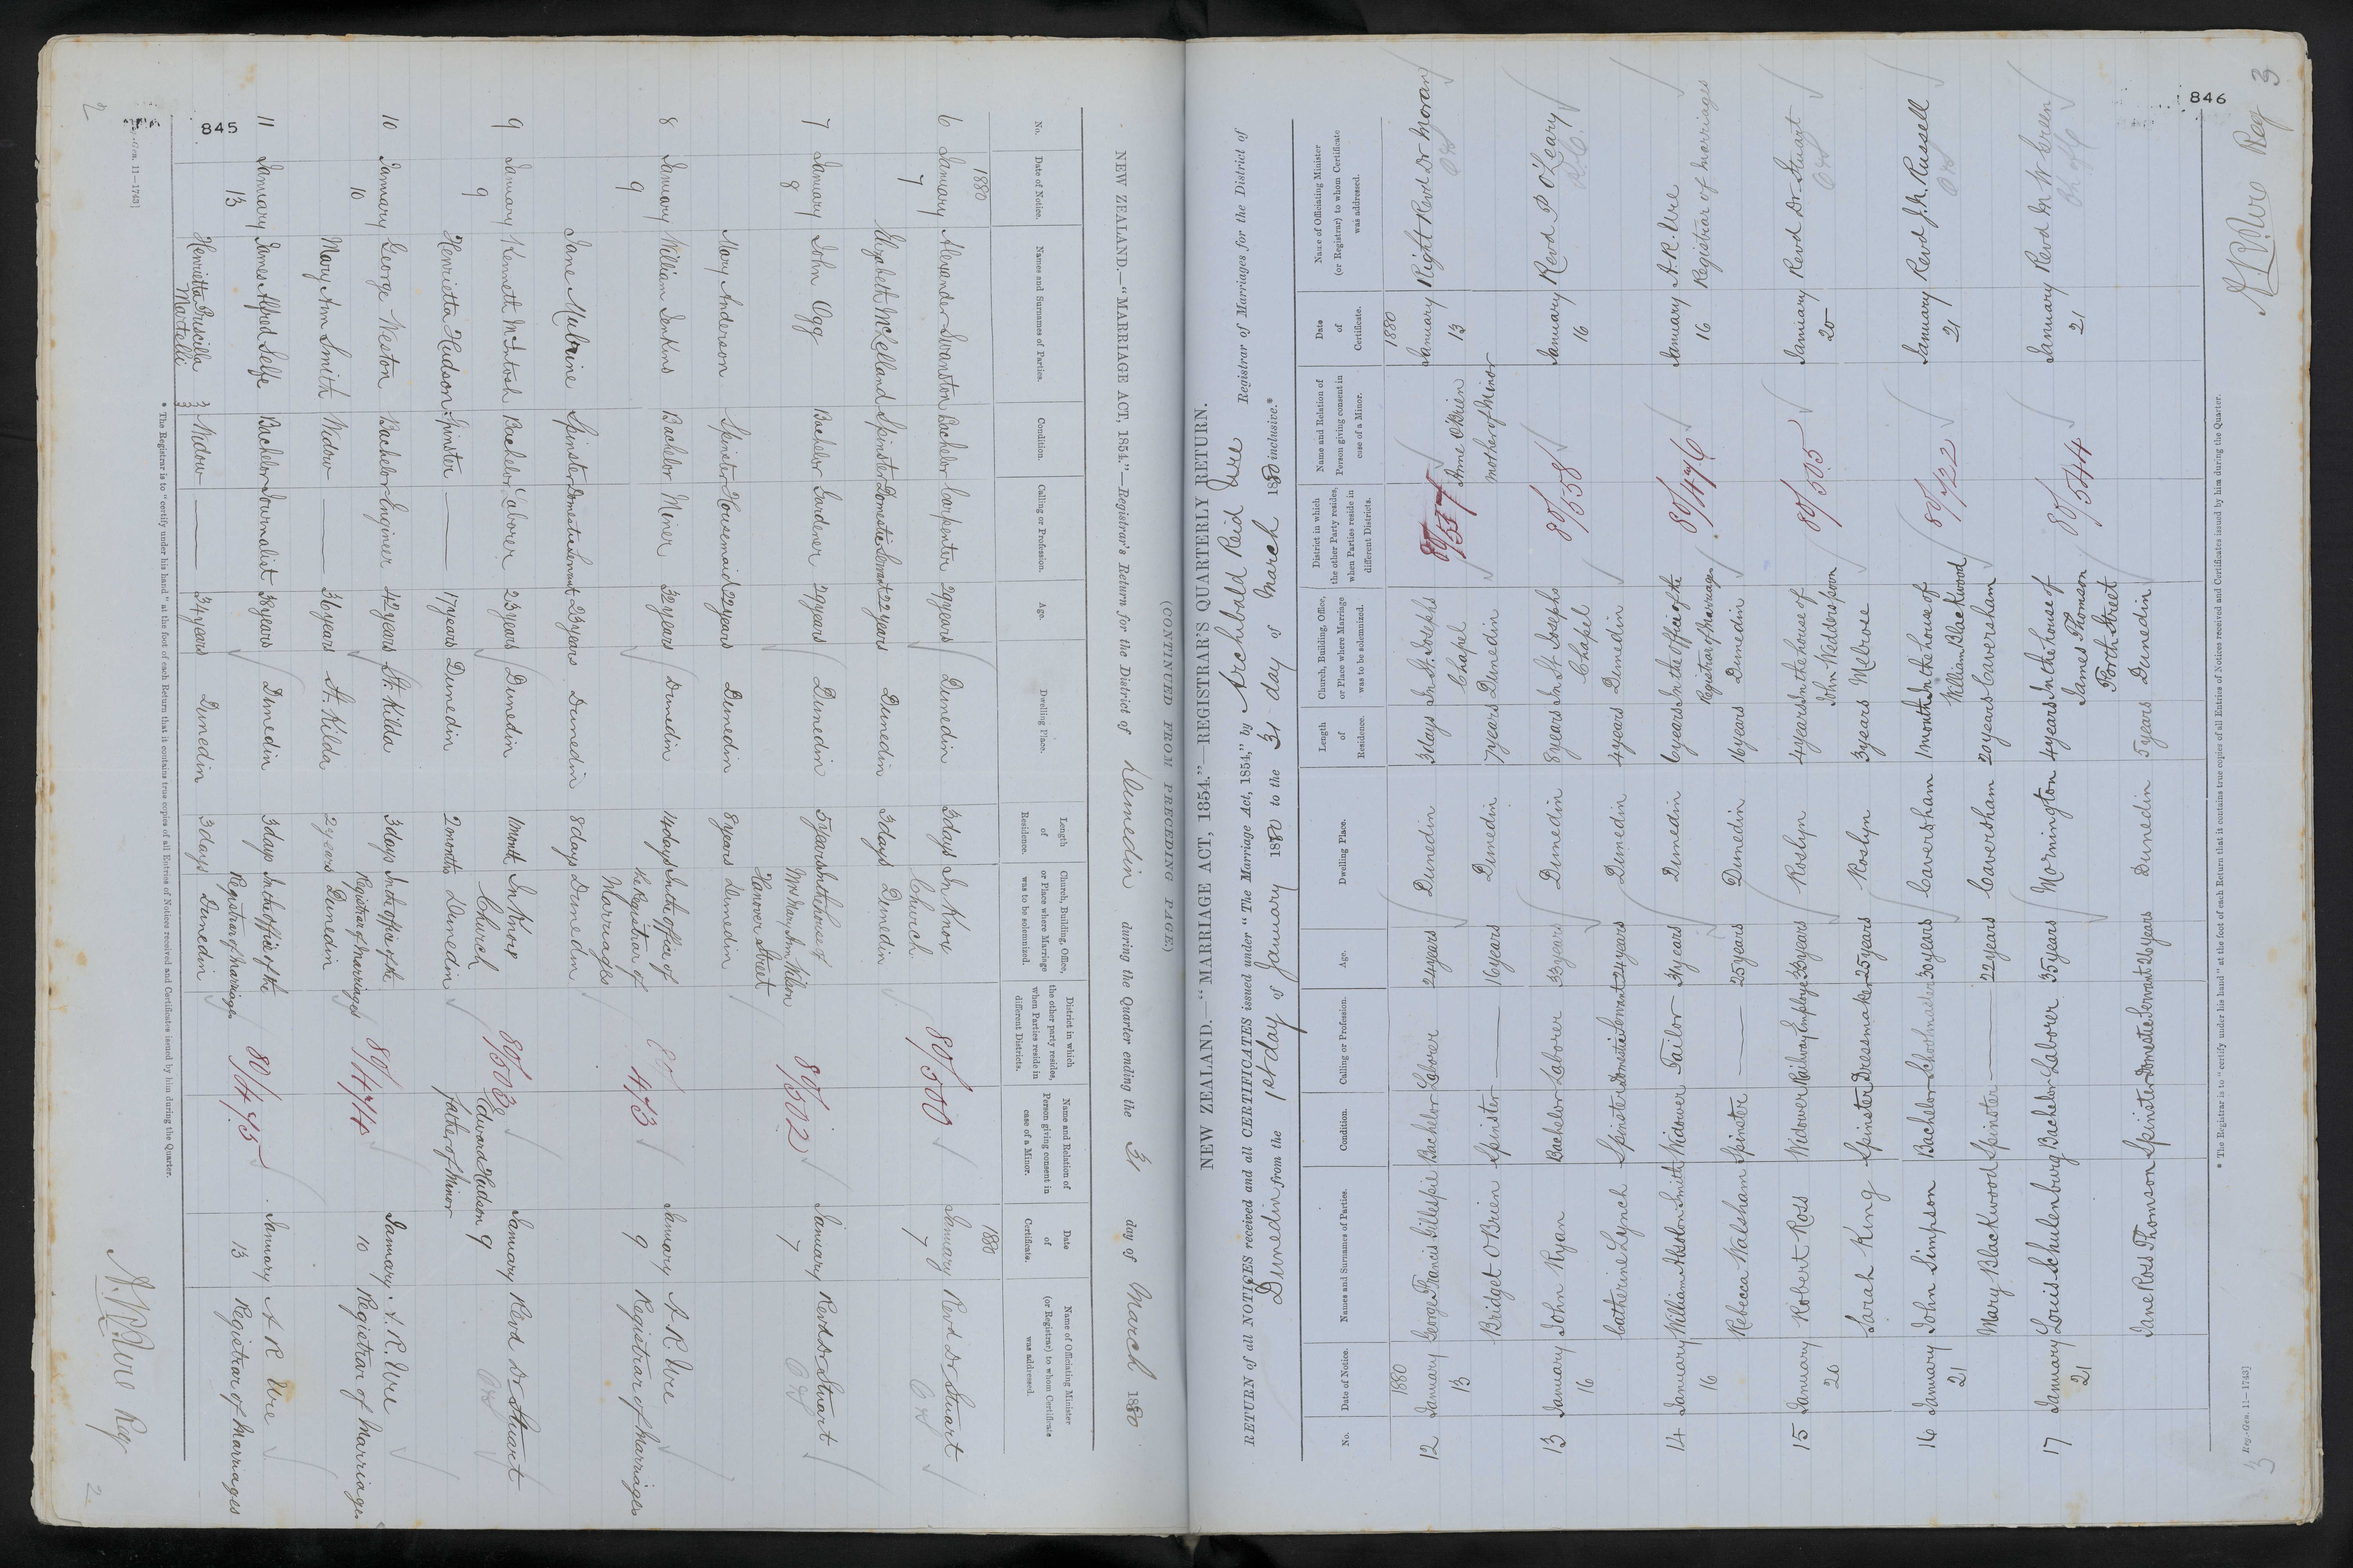 (CONTINUED FROM PRECEDING PAGE)
NEW ZEALAND.—"MARRIAGE ACT, 1854."—Registrar's Return for the District of Dunedin during the Quarter ending the 31 day of March 1880
No. Date of Notice. Names and Surnames of Parties. Condition. Calling or Profession. Age. Dwelling Place. Length of Residence. Church, Building, Office, or Place where Marriage was to be solemnized. District in which the other party resides, when Parties reside in different Districts. Name and Relation of Person giving consent in case of a Minor. Date of Certificate. Name of Officiating Minister (or Registrar) to whom Certificate was addressed.
1880 1880
6 January Alexander Swanston Bachelor Carpenter 29 years Dunedin 3 days In Knox 80/500 January Revd Dr Stuart
7 Church 7
Elizabeth McLelland Spinster Domestic Servant 22 years Dunedin 3 days Dunedin
7 January John Ogg Bachelor Gardener 29 years Dunedin 5 years In the house of 80/502 January Revd Dr Stuart
8 Mrs Mary Ann Wilson 7
Hanover Street
Mary Anderson Spinster Housemaid 22 years Dunedin 8 years Dunedin
8 January William Jenkins Bachelor Miner 32 years Dunedin 14 days In the office of 80/473 January A. R. Ure
9 the Registrar of 9 Registrar of Marriages
Marriages
Jane Spinster Domestic Servant 23 years Dunedin 8 days Dunedin
9 January Kenneth McIntosh Bachelor Laborer 23 years Dunedin 1 month In Knox 80/503 Edward Hudson January Revd Dr Stuart
9 Church father of Minor 9
Henrietta Hudson Spinster — 17 years Dunedin 2 months Dunedin
10 January George Weston Bachelor Engineer 42 years St. Kilda 3 days In the office of the 80/474 January A. R. Ure
10 Registrar of Marriages 10 Registrar of Marriages
Mary Ann Smith Widow — 36 years St. Kilda 2 years Dunedin
11 January James Alfred Selfe Bachelor Journalist 38 years Dunedin 3 days In the office of the 80/475 January A R Ure
13 Registrar of Marriages 13 Registrar of Marriages
Henrietta Priscilla Martelli Widow — 34 years Dunedin 3 days Dunedin
* The Registrar is to "certify under his hand" at the foot of each Return that it contains true copies of all Entries of Notices received and Certificates issued by him during the Quarter.
845
11—1743]
2 A. R. Ure Reg 2
NEW ZEALAND.—"MARRIAGE ACT, 1854."—REGISTRAR'S QUARTERLY RETURN.
RETURN of all NOTICES received and all CERTIFICATES issued under "The Marriage Act, 1854," by Archibald Reid Ure Registrar of Marriages for the District of
Dunedin from the 1st day of January 1880 to the 31 day of March 1880 inclusive.*
No. Date of Notice. Names and Surnames of Parties. Condition. Calling or Profession. Age. Dwelling Place. Length of Residence. Church, Building, Office, or Place where Marriage was to be solemnized. District in which the other Party resides, when Parties reside in different Districts. Name and Relation of Person giving consent in case of a Minor. Date of Certificate. Name of Officiating Minister (or Registrar) to whom Certificate was addressed.
1880 1880
12 January George Francis Gillespie Bachelor Laborer 24 years Dunedin 3 days In St. Josephs 80/557 January Right Revd Dr Moran
13 Chapel Anne O'Brien 13
Bridget O'Brien Spinster — 16 years Dunedin 7 years Dunedin mother of Minor
13 January John Ryan Bachelor Laborer 33 years Dunedin 8 years In St Josephs 80/558 January Revd P O'Leary
16 Chapel 16 R.C.
Catherine Lynch Spinster Domestic Servant 24 years Dunedin 4 years Dunedin
14 January William Absolon Smith Widower Tailor 31 years Dunedin 6 years In the Office of the 80/476 January A. R. Ure
16 Registrar of Marriages 16 Registrar of Marriages
Rebecca Walsham Spinster — 25 years Dunedin 16 years Dunedin
15 January Robert Ross Widower Railway Employe 33 years Roslyn 4 years In the house of 80/505 January Revd Dr Stuart
20 John Wedderspoon 20
Sarah King Spinster Dressmaker 25 years Roslyn 3 years Melrose
16 January John Simpson Bachelor Schoolmaster 30 years Caversham 1 month In the house of 80/422 January Revd J. M. Russell
21 William Blackwood 21
Mary Blackwood Spinster — 22 years Caversham 20 years Caversham
17 January Louis Schulenburg Bachelor Laborer 35 years Mornington 4 years In the house of 80/544 January Revd M W Green
21 James Thomson 21
Forth Street
Jane Ross Thomson Spinster Domestic Servant 26 years Dunedin 5 years Dunedin
* The Registrar is to "certify under his hand" at the foot of each Return that it contains true copies of all Entries of Notices received and Certificates issued by him during the Quarter.
846
Reg.-Gen. 11—1743]
3 A. R. Ure Reg 3